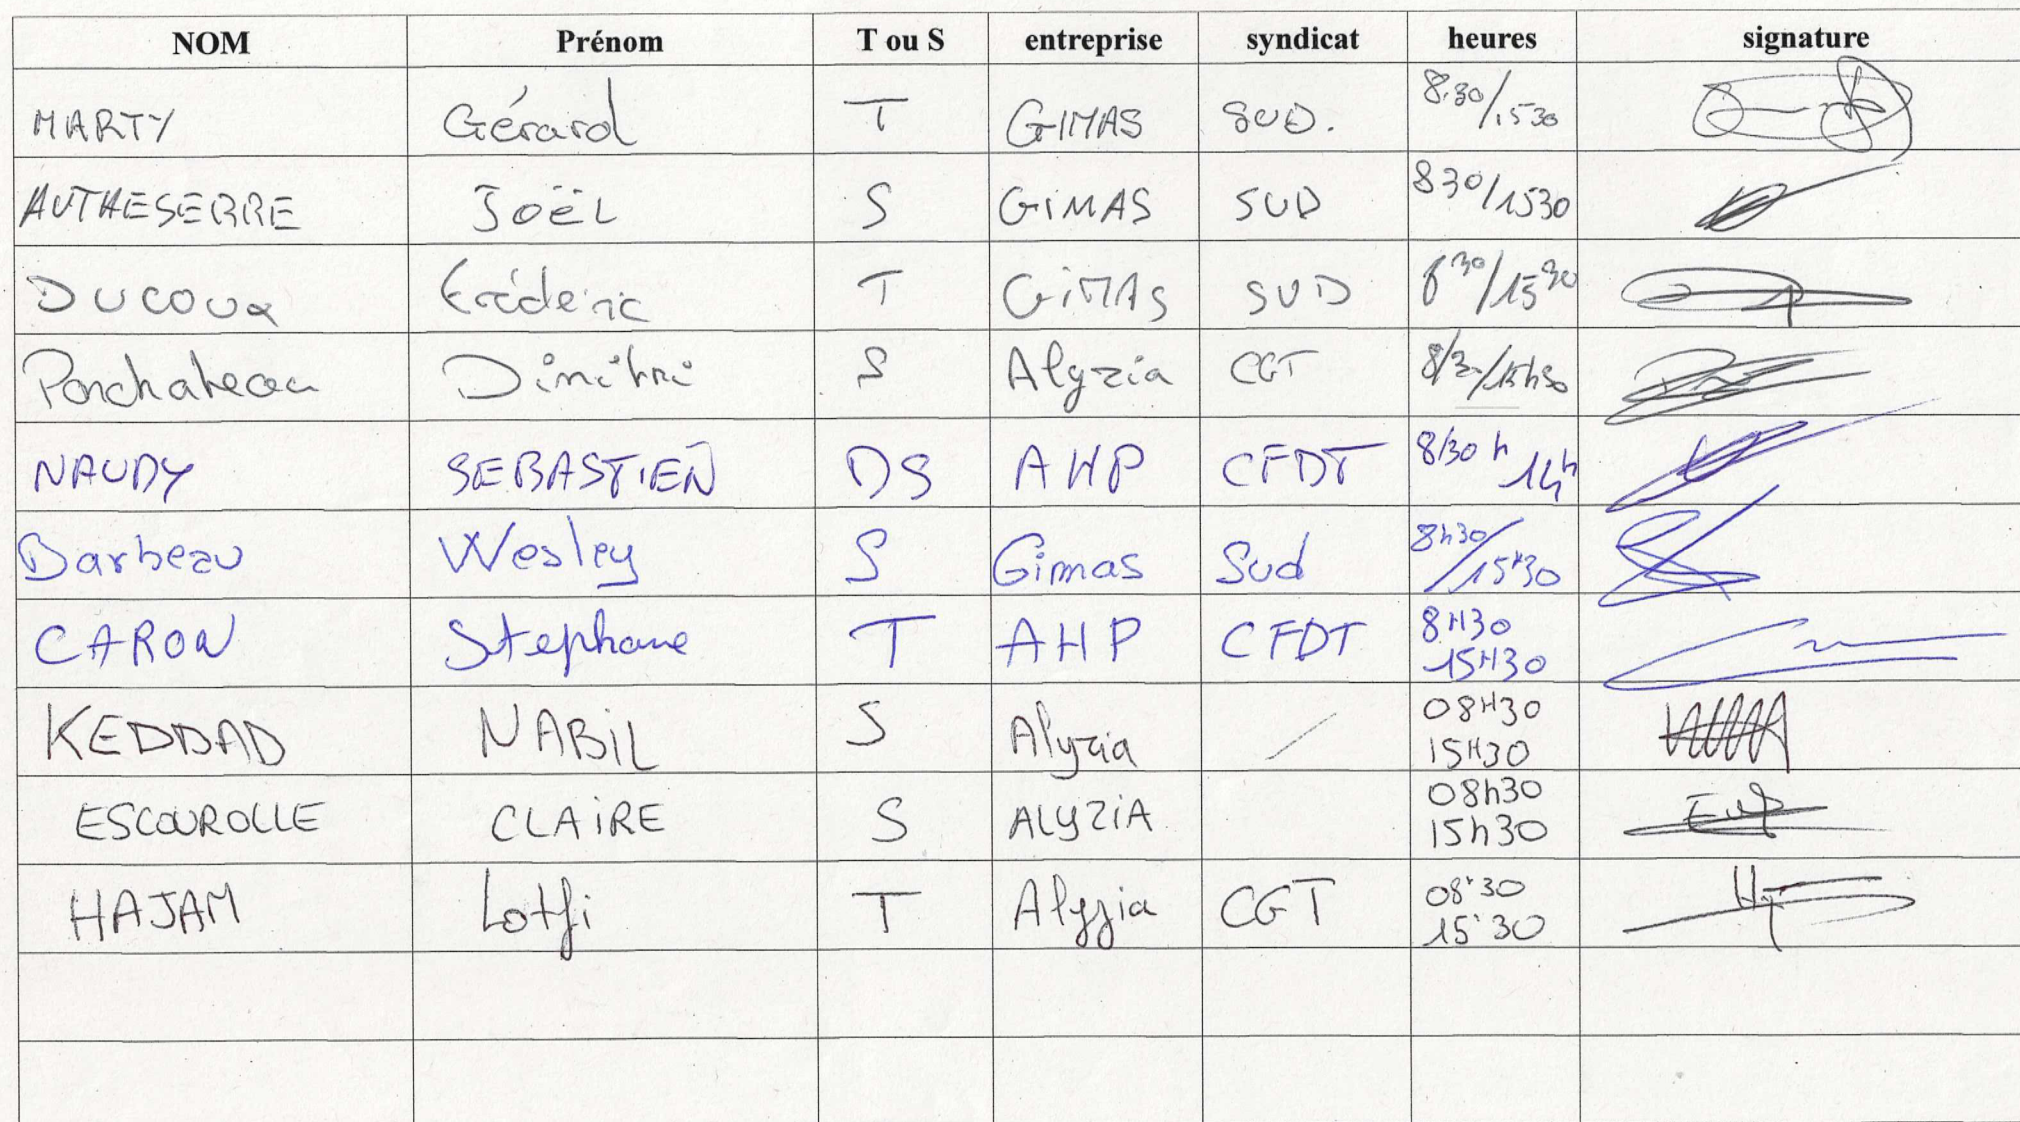 NOM Prénom T ou S entreprise syndicat heures signature
MARTY Gérard T GIMAS SUD. 8.30/1530
AUTHESERRE Joël S GiMAS SUD 830/1530
DUCOUX Frédéric T GiMAs SUD 8 30/15 30
Ponchateau Dimitri S Alyzia CGT
NAUDY SEBASTIEN DS AHP CFDT 8/30 h 14h
Barbeau Wesley S Gimas Sud 8h30/15h30
CARON Stephane T AHP CFDT 8H30
15H30
KEDDAD NABiL S Alyzia / 08H30
15H30
ESCOUROLLE CLAiRE S ALYZiA 08h30
15h30
HAJAM Lotfi T Alyzia CGT 08'30
15'30